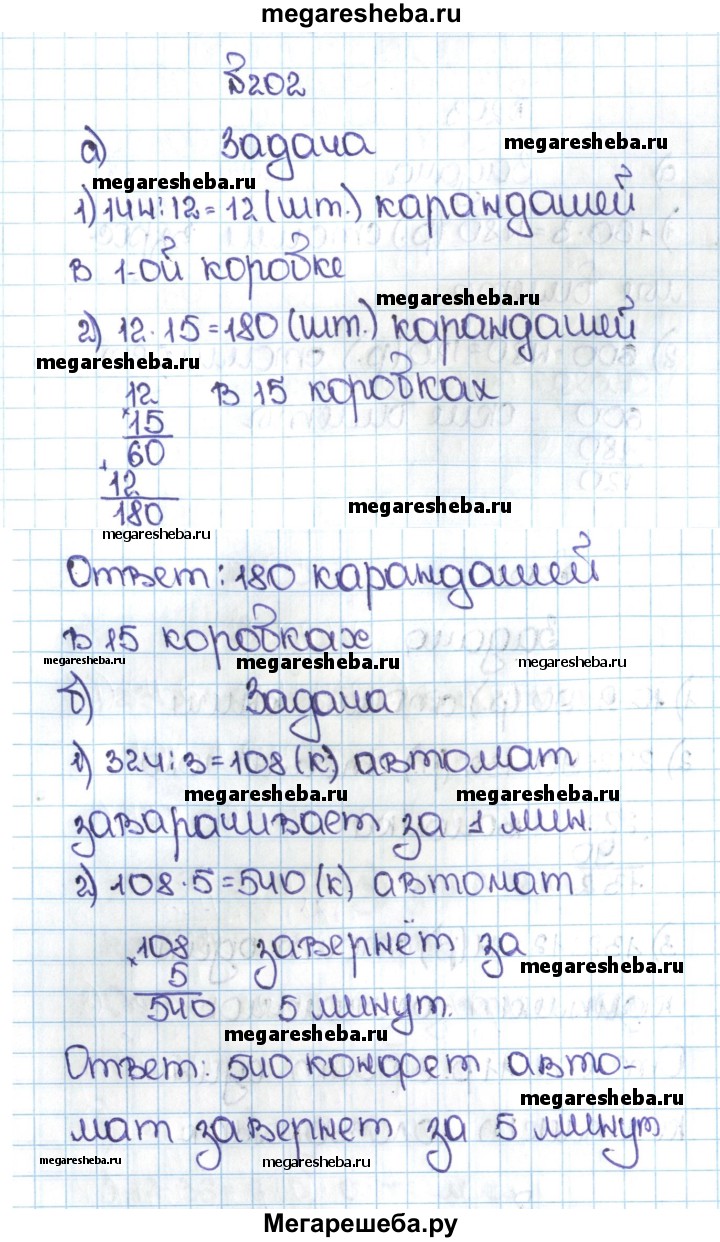 megaresheba.ru
№202
а) Задача
megaresheba.ru
megaresheba.ru
1) 144:12=12 (шт.) карандашей
в 1-ой коробке
megaresheba.ru
2) 12·15=180 (шт.) карандашей
megaresheba.ru
12 в 15 коробках
×
15
60
+
12
megaresheba.ru
180
megaresheba.ru
Ответ: 180 карандашей
в 15 коробках
megaresheba.ru megaresheba.ru megaresheba.ru
б) Задача
1) 324:3=108 (к) автомат
megaresheba.ru megaresheba.ru
заварачивает за 1 мин.
2) 108·5=540 (к) автомат
×108 завернёт за
5 megaresheba.ru
540 5 минут.
megaresheba.ru
Ответ: 540 конфет авто-
megaresheba.ru
мат завернет за 5 минут
megaresheba.ru megaresheba.ru
Мегарешеба.ру